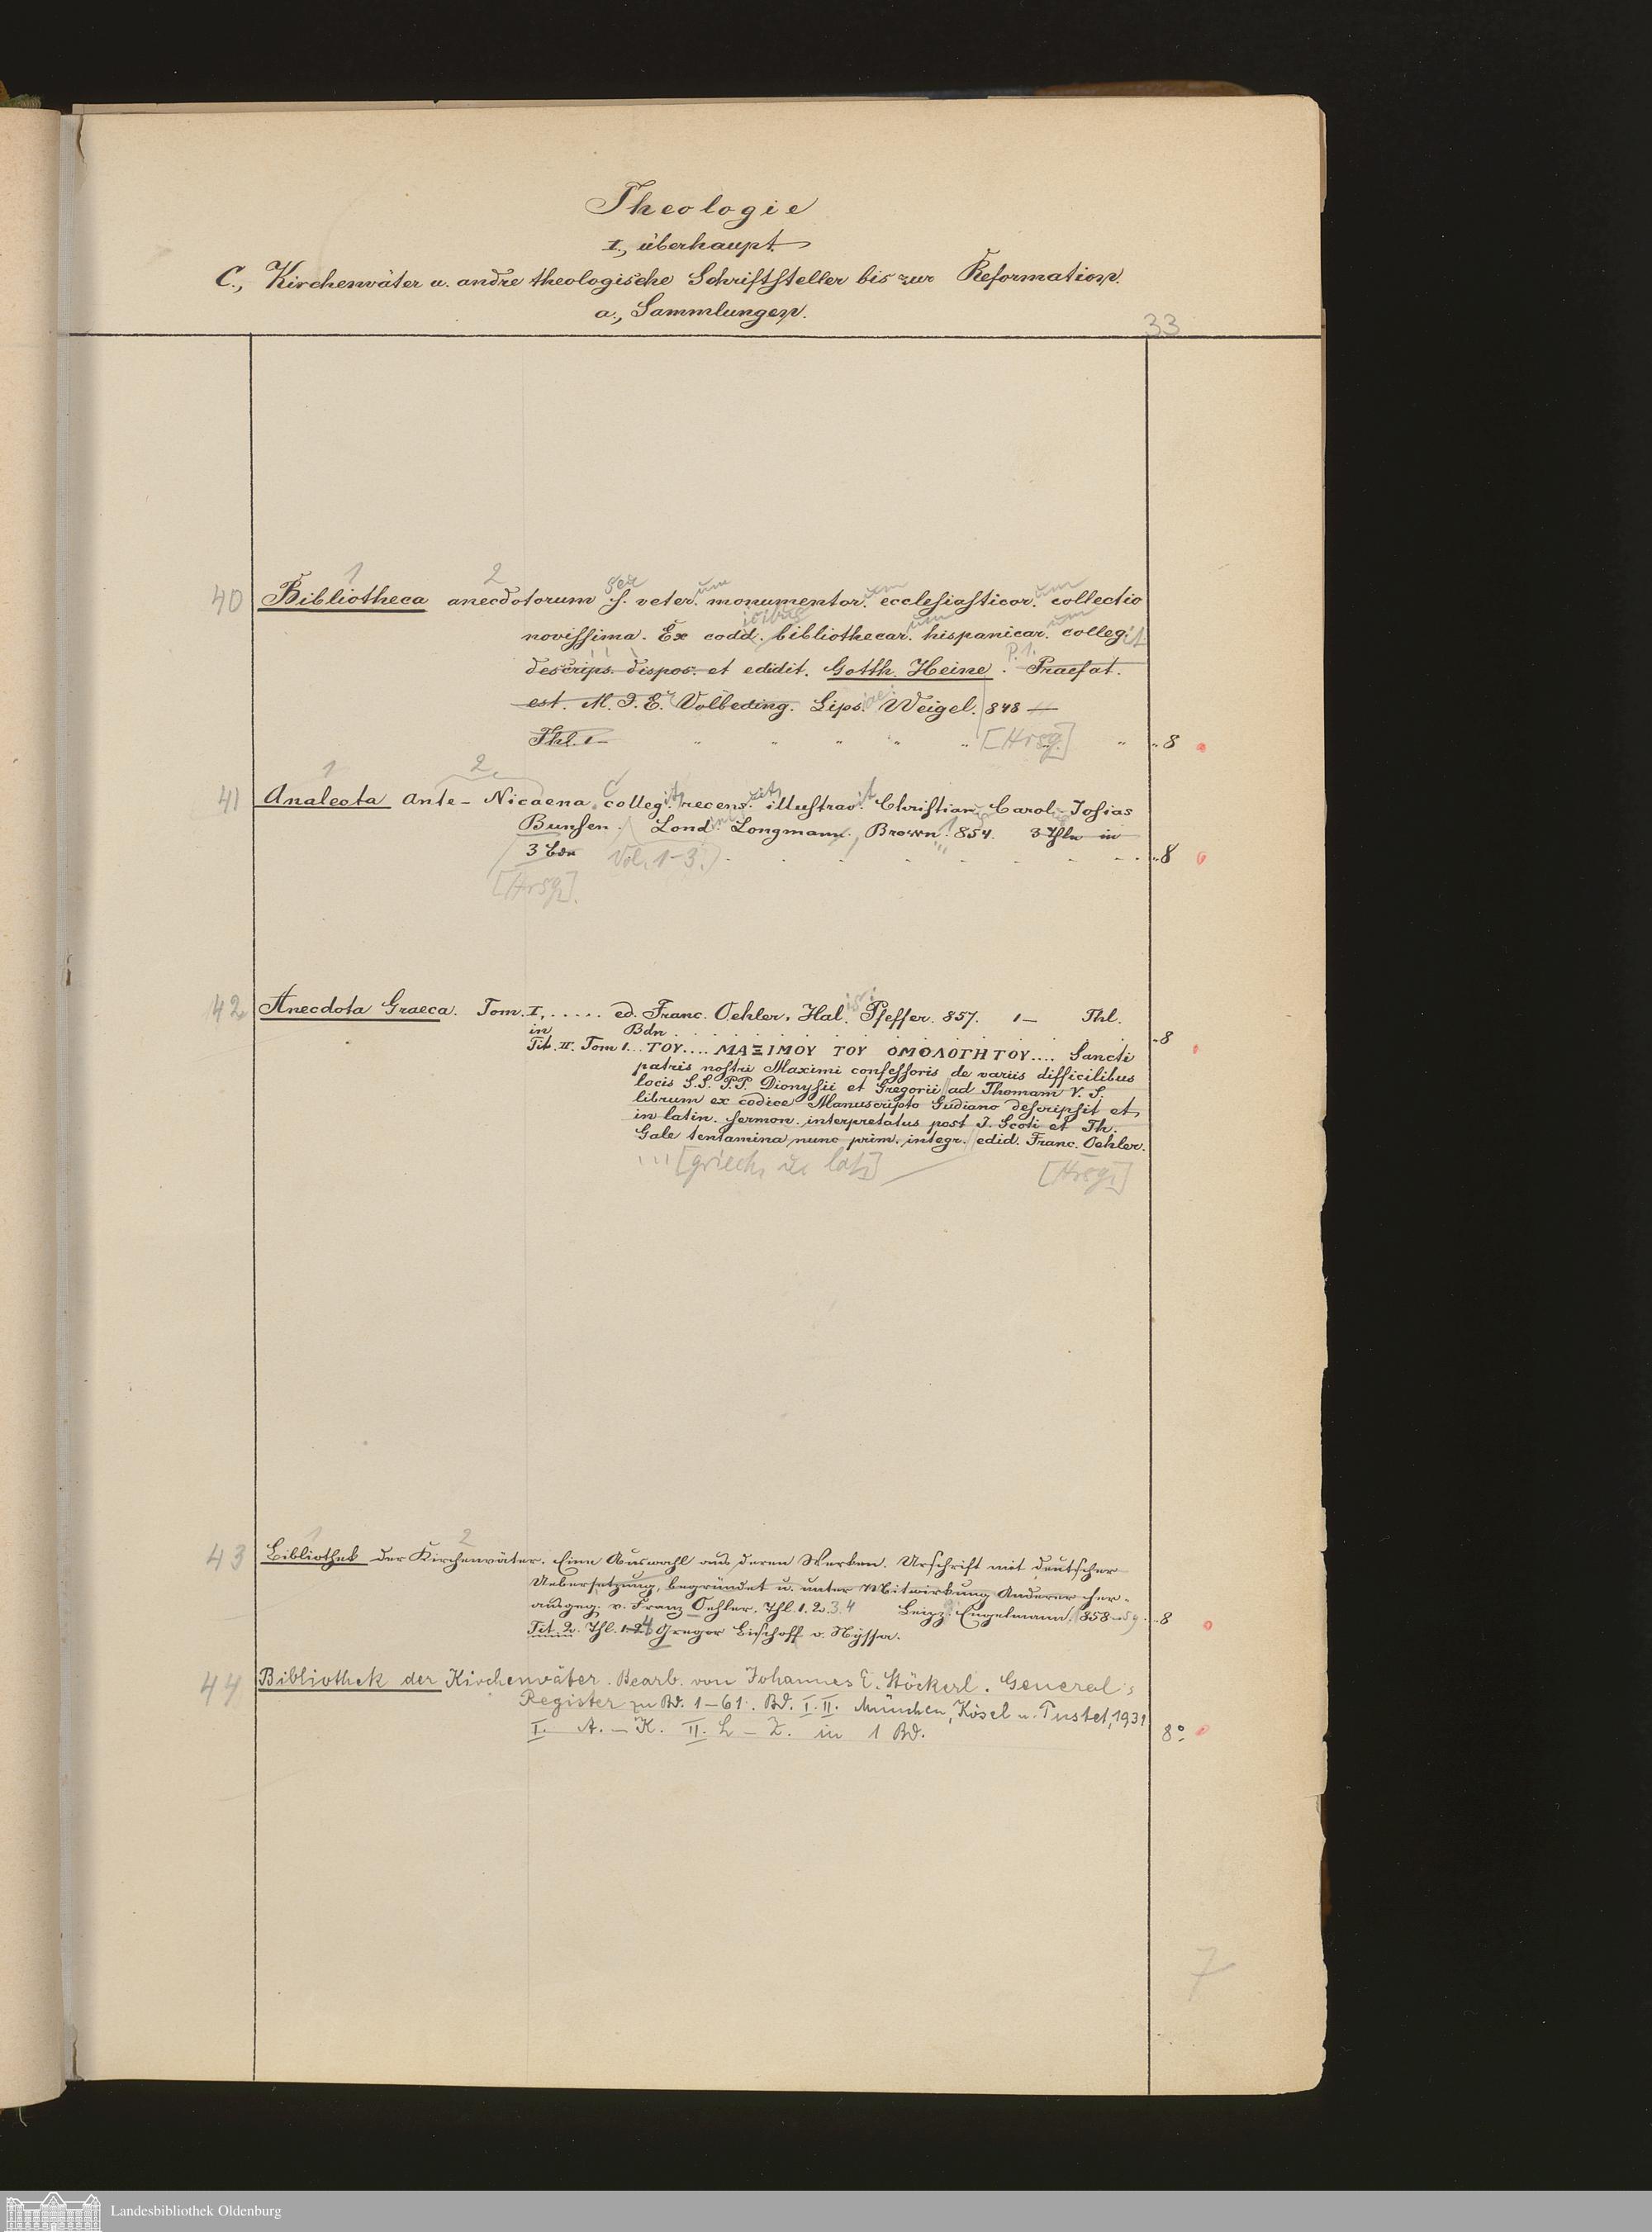 Theologie
I., überhaupt.
C., Kirchenväter u. andre theologische Schriftsteller bis zur Reformation.
a., Sammlungen.
33
1 2 seu um um um
40 Bibliotheca anecdotorum s. veter. monumentor. ecclesiasticor. collectio
icibus um um
novissima. Ex codd. bibliothecar. hispanicar. collegit
P. 1.
descrips. dispos. et edidit. Gotth. Heine. Praefat.
est. M. J. E. Volbeding. Lips. Weigel. 848 —
Thl. 1 — [Hrsg.] 8
1 2
41 Analecta Ante-Nicaena collegit, recens. illustrav. Christian. Carol. Josias
Bunsen. Lond. Longmann, Brown. 854. 3 Thle in
3 Bdn Vol. 1-3. 8
[Hrsg.]
42 Anecdota Graeca. Tom. I, ..... ed. Franc. Oehler. Hal. Pfeffer. 857. 1 — Thl.
in Bdn 8
Tit. II. Tom 1... ΤΟΥ.... ΜΑΞΙΜΟΥ ΤΟΥ ΟΜΟΛΟΓΗΤΟΥ.... Sancti
patris nostri Maximi confessoris de variis difficilibus
locis S.S. P.P. Dionysii et Gregorii ad Thomam V. S.
librum ex codice Manuscripto Gudiano descripsit et
in latin. sermon. interpretatus post J. Scoti et Th.
Gale tentamina nunc prim. integr. edid. Franc. Oehler.
... [griech. u. lat.] [Hrsg.]
1 2
43 Bibliothek der Kirchenväter. Eine Auswahl aus deren Werken. Urschrift mit deutscher
Uebersetzung, begründet u. unter Mitwirkung Anderer her-
ausgeg. v. Franz Oehler. Thl. 1. 2. 3. 4 Leipz. Engelmann. 858-59. 8
Tit. 2. Thl. 1-4 Gregor Bischoff v. Nyssa.
44 Bibliothek der Kirchenväter. Bearb. von Johannes E. Stöckerl. General-
Register zu Bd. 1-61. Bd. I. II. München, Kösel u. Pustet, 1931
I. A. - K. II. L - Z. in 1 Bd. 8°
7
Landesbibliothek Oldenburg